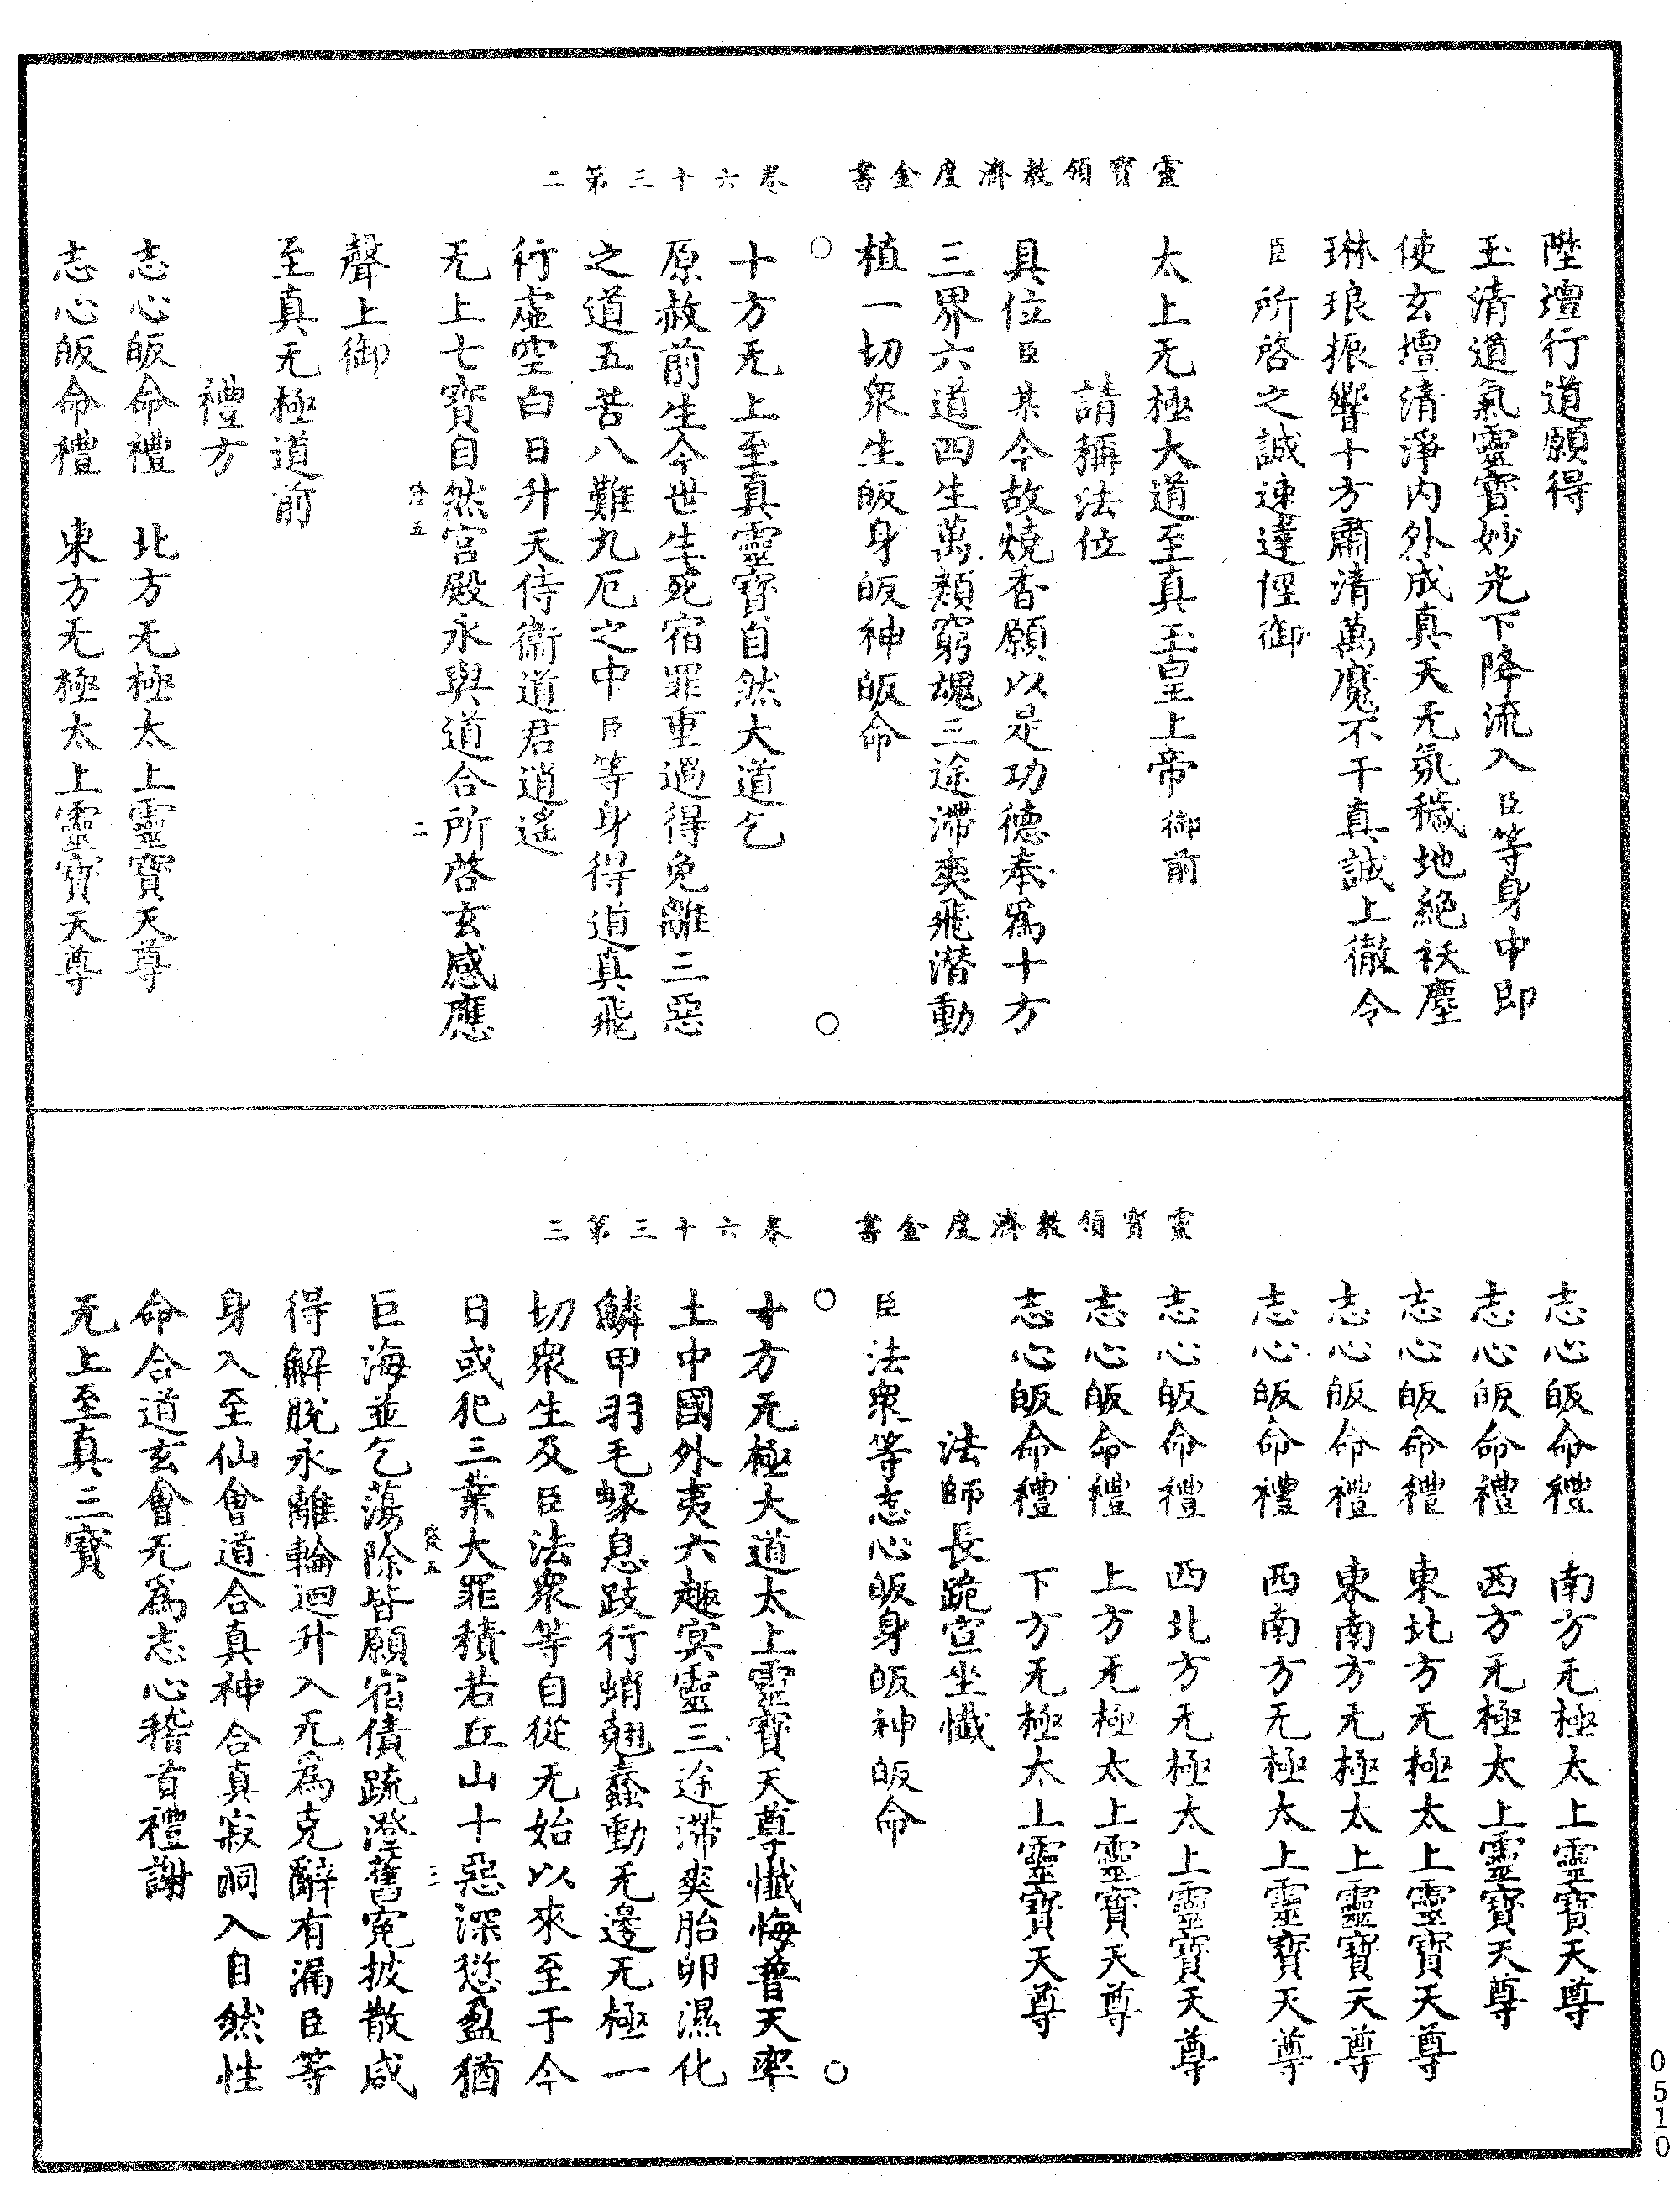 靈寶領教濟度金書　卷六十三第二
陞壇行道願得
玉清道氣靈寶妙光下降流入臣等身中即
使玄壇清淨内外成真天无氛穢地絶袄塵
琳琅振響十方肅清萬魔不干真誠上徹令
臣所啓之誠速達徑御
太上无極大道至真玉皇上帝御前
請稱法位
具位臣某今故燒香願以是功德奉爲十方
三界六道四生萬類窮魂三途滯爽飛潛動
植一切衆生皈身皈神皈命
十方无上至真靈寶自然大道乞
原赦前生今世生死宿罪重過得免離三惡
之道五苦八難九厄之中臣等身得道真飛
行虚空白日升天侍衞道君逍遙
无上七寶自然宫殿永與道合所啓玄感應
聲上御
至真无極道前
禮方
志心皈命禮　北方无極太上靈寶天尊
志心皈命禮　東方无極太上靈寶天尊
靈寶領教濟度金書　卷六十三第三
志心皈命禮　南方无極太上靈寶天尊
志心皈命禮　西方无極太上靈寶天尊
志心皈命禮　東北方无極太上靈寶天尊
志心皈命禮　東南方无極太上靈寶天尊
志心皈命禮　西南方无極太上靈寶天尊
志心皈命禮　西北方无極太上靈寶天尊
志心皈命禮　上方无極太上靈寶天尊
志心皈命禮　下方无極太上靈寶天尊
法師長跪宣坐懺
臣法衆等志心皈身皈神皈命
十方无極大道太上靈寶天尊懺悔普天率
土中國外夷六趣冥靈三途滯爽胎卵濕化
鱗甲羽毛蝝息跂行蛸翹蠢動无邊无極一
切衆生及臣法衆等自從无始以來至于今
日或犯三業大罪積若丘山十惡深愆盈猶
巨海並乞蕩除皆願宿債疏澄舊寃披散咸
得解脱永離輪迴升入无爲克辭有漏臣等
身入至仙會道合真神合真寂洞入自然性
命合道玄會无爲志心稽首禮謝
无上至真三寶
0510